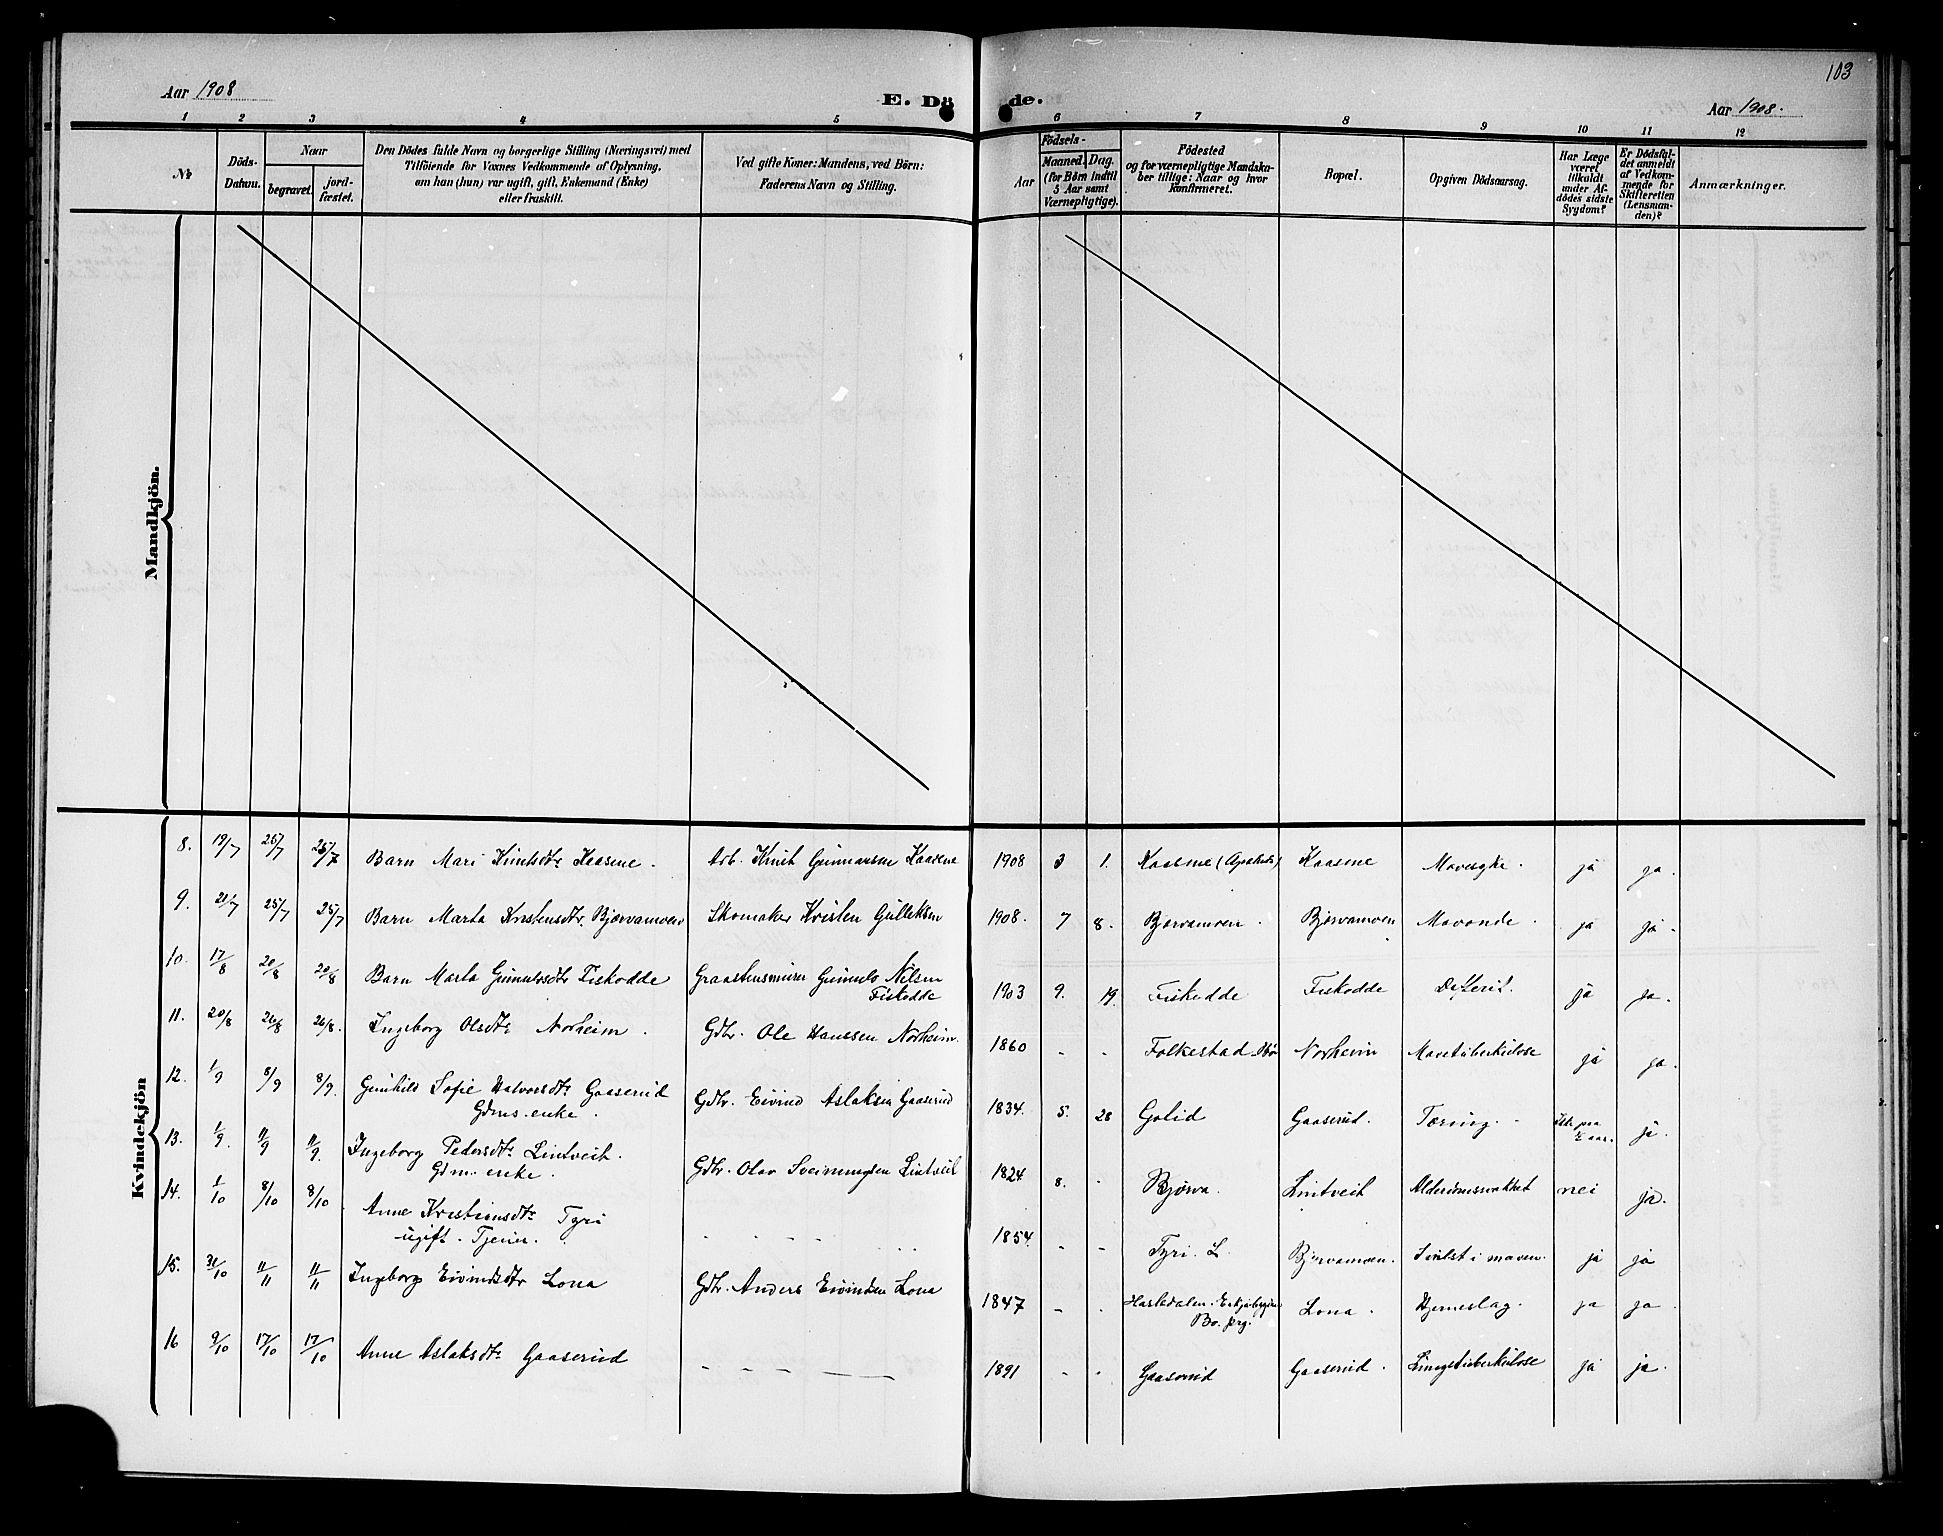 103
Aar 1908
E. Dö de.
Aar 1908.
1 2 3 4 5 6 7 8 9 10 11 12
No
Döds-Datum.
Naar
begravet.
jord-fæstet.
Den Dödes fulde Navn og borgerlige Stilling (Næringsvei) med
Tilföiende for Voxnes Vedkommende af Oplysning,
om han (hun) var ugift, gift, Enkemand (Enke)
eller fraskilt.
Ved gifte Koner: Mandens, ved Börn:
Faderens Navn og Stilling.
Födsels-
Aar
Maaned.
Dag.
(for Börn indtil
5 Aar samt
Værnepligtige).
Födested
og for værnepligtige Mandska-
ber tillige: Naar og hvor
konfirmeret.
Bopæl.
Opgiven Dödsaarsag.
Har Læge
været
tilkaldt
under Af-
dödes sidste
Sygdom?
Er Dödsfal-
det anmeldt
af Vedkom-
mende for
Skifteretten
(Lensman-
den)?
Anmærkninger.
Mandkjön.
Kvindekjön
8. 19/7 25/7 25/7 Barn Mari Knutsdtr Kaasene. Arb. Knut Gunnarsen Kaasene 1908 3 1. Kaasene (Apothek) Kaasene Mavesyke. ja ja.
9. 21/7 25/7 25/7 Barn Marta Kristensdtr. Bjørvamoen Skomaker Kristen Gulleksen 1908. 7 8. Bjørvamoen. Bjørvamoen Mavonde. ja ja.
10. 17/8 20/8 20/8 Barn Marta Gunnulvsdtr Fiskodde Graastensmurer Gunnulv Nilsen
Fiskodde 1903 9. 19. Fiskodde Fiskodde ja ja.
11. 20/8 26/8 26/8. Ingeborg Olsdtr Norheim. Gdbr. Ole Hanssen Norheim. 1860 - - Folkestad Bø Norheim Mavetuberkulose ja ja.
12. 1/9 8/9 8/9. Gunhild Sofie Halvorsdtr Gaaserud
Gdms. enke. Gdbr. Eivind Aslaksen Gaaserud 1834. 5. 28 Golid Gaaserud. Tæring. - ja.
13. 1/9. 11/9 11/9. Ingeborg Pedersdtr Lintveit.
Gdm. enke. Gdbr. Olav Sveinungsen Lintveit 1824 8. - Bjørva. Lintveit Alderdomssvakhet nei ja.
14. 1/10 8/10 8/10. Anne Kristensdtr Tyri
ugift. Tjener. - - - - 1854. - - Tyri. L. Bjørvamoen. Svulst i maven. ja ja
15. 31/10 11/11 11/11 Ingeborg Eivindsdtr Lona Gdbr. Anders Eivindsen Lona 1847 - - Bø. prg. Lona. Hjerneslag. ja ja.
16 9/10 17/10 17/10 Anne Aslaksdtr Gaaserud - - - - 1891 - - Gaaserud Gaaserud. Lungetuberkulose ja ja.